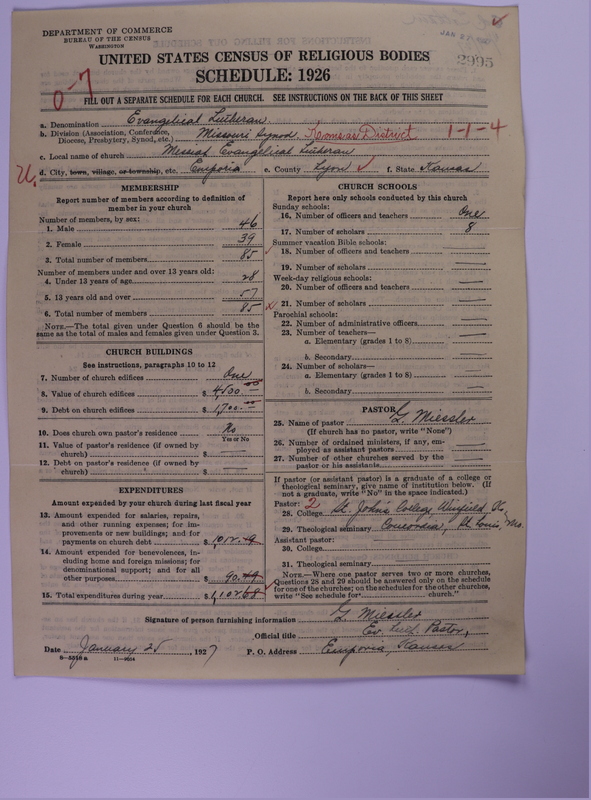 DEPARTMENT OF COMMERCE
BUREAU OF THE CENSUS
WASHINGTON
JAN 27
2995
UNITED STATES CENSUS OF RELIGIOUS BODIES
SCHEDULE: 1926
0-7
FILL OUT A SEPARATE SCHEDULE FOR EACH CHURCH. SEE INSTRUCTIONS ON THE BACK OF THIS SHEET
a. Denomination Evangelical Lutheran
b. Division (Association, Conference, Diocese, Presbytery, Synod, etc.) Missouri Synod. Kansas District 1-1-4
c. Local name of church Messiah Evangelical Lutheran
U. d. City, town, village, or township, etc. Emporia e. County Lyon f. State Kansas
MEMBERSHIP
Report number of members according to definition of member in your church
Number of members, by sex:
1. Male 46
2. Female 39
3. Total number of members 85
Number of members under and over 13 years old:
4. Under 13 years of age 28
5. 13 years old and over 57
6. Total number of members 85
NOTE.—The total given under Question 6 should be the same as the total of males and females given under Question 3.
CHURCH BUILDINGS
See instructions, paragraphs 10 to 12
7. Number of church edifices One
8. Value of church edifices $ 4500.00
9. Debt on church edifices $ 1,700.00
10. Does church own pastor's residence No
Yes or No
11. Value of pastor's residence (if owned by church) $ —
12. Debt on pastor's residence (if owned by church) $ —
EXPENDITURES
Amount expended by your church during last fiscal year
13. Amount expended for salaries, repairs, and other running expenses; for improvements or new buildings; and for payments on church debt $ 1,012.19
14. Amount expended for benevolences, including home and foreign missions; for denominational support; and for all other purposes $ 90.49
15. Total expenditures during year $ 1,102.68
CHURCH SCHOOLS
Report here only schools conducted by this church
Sunday schools:
16. Number of officers and teachers One
17. Number of scholars 8
Summer vacation Bible schools:
18. Number of officers and teachers —
19. Number of scholars —
Week-day religious schools:
20. Number of officers and teachers —
21. Number of scholars —
Parochial schools:
22. Number of administrative officers —
23. Number of teachers—
a. Elementary (grades 1 to 8) —
b. Secondary —
24. Number of scholars—
a. Elementary (grades 1 to 8) —
b. Secondary —
PASTOR
25. Name of pastor G. Miessler
(If church has no pastor, write "None")
26. Number of ordained ministers, if any, employed as assistant pastors —
27. Number of other churches served by the pastor or his assistants —
If pastor (or assistant pastor) is a graduate of a college or theological seminary, give name of institution below. (If not a graduate, write "No" in the space indicated.)
Pastor: 2
28. College St. John's College, Winfield, Ks.
29. Theological seminary Concordia, St. Louis, Mo.
Assistant pastor:
30. College
31. Theological seminary
NOTE.—Where one pastor serves two or more churches, Questions 28 and 29 should be answered only on the schedule for one of the churches; on the schedules for the other churches, write "See schedule for church."
Signature of person furnishing information G. Miessler
Official title Ev. Luth. Pastor,
Date January 25 1927 P. O. Address Emporia, Kansas
8-5510a 11-9024